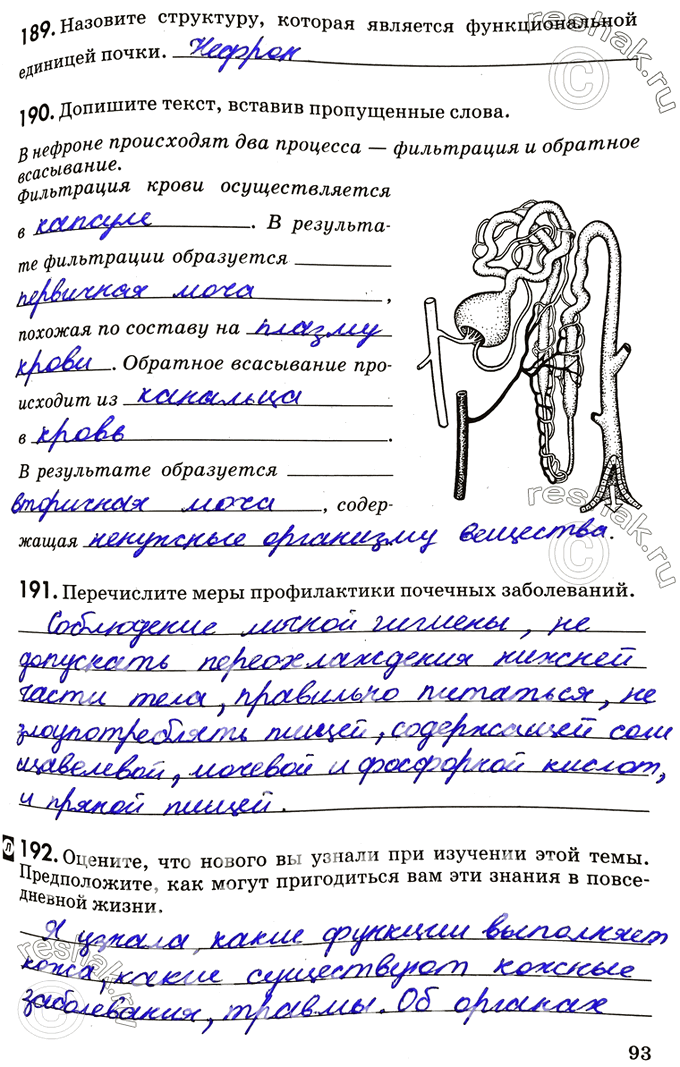 189. Назовите структуру, которая является функциональной
единицей почки. Нефрон
190. Допишите текст, вставив пропущенные слова.
В нефроне происходят два процесса — фильтрация и обратное
всасывание.
Фильтрация крови осуществляется
в капсуле. В результа-
те фильтрации образуется
первичная моча,
похожая по составу на плазму
крови. Обратное всасывание про-
исходит из канальца
в кровь.
В результате образуется
вторичная моча, содер-
жащая ненужные организму вещества.
191. Перечислите меры профилактики почечных заболеваний.
Соблюдение личной гигиены, не
допускать переохлаждения нижней
части тела, правильно питаться, не
злоупотреблять пищей, содержащей соли
щавелевой, мочевой и фосфорной кислот,
и пряной пищей.
л 192. Оцените, что нового вы узнали при изучении этой темы.
Предположите, как могут пригодиться вам эти знания в повсе-
дневной жизни.
Я узнала, какие функции выполняет
кожа, какие существуют кожные
заболевания, травмы. Об органах
93
reshak.ru
reshak.ru
reshak.ru
reshak.ru